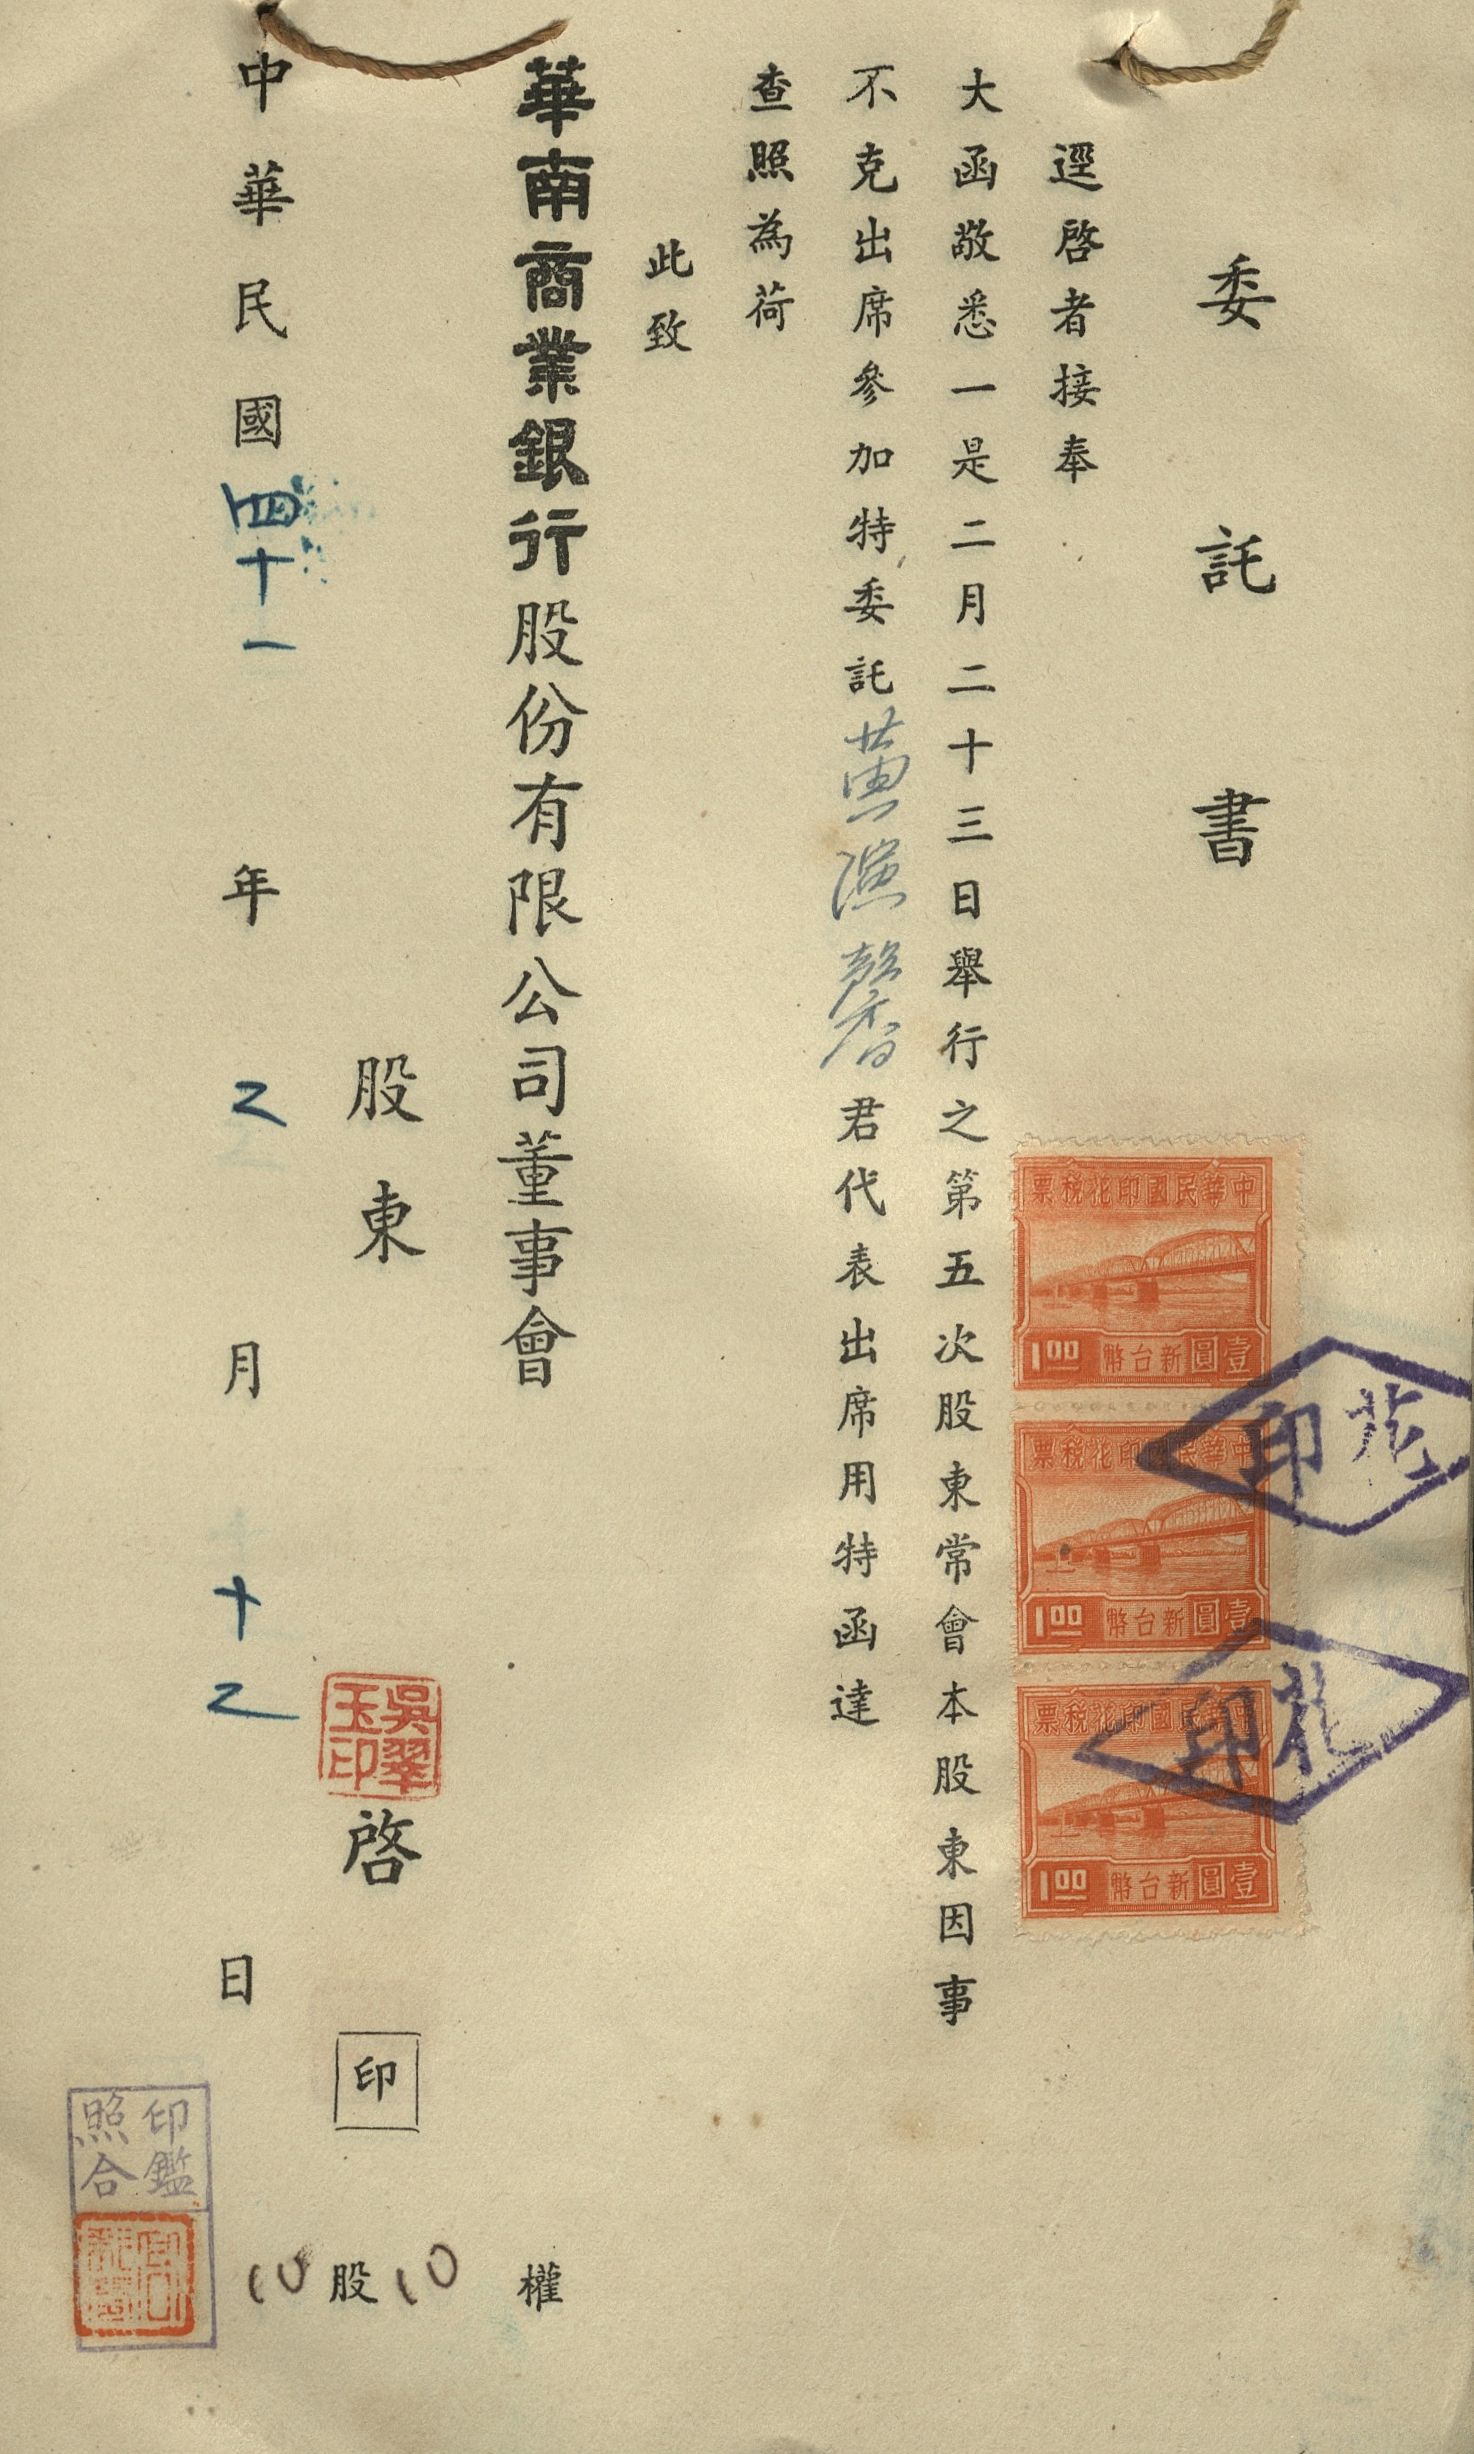 委託書
逕啓者接奉
大函敬悉一是二月二十三日舉行之第五次股東常會本股東因事
不克出席參加特委託黃漂馨君代表出席用特函達
查照為荷
此致
華南商業銀行股份有限公司董事會
股東 啓 印
吳翠玉印
中華民國四十一年二月十二日
10股10權
印鑑
照合
中華民國印花稅票
1.00 新台幣壹圓
中華民國印花稅票
1.00 新台幣壹圓
中華民國印花稅票
1.00 新台幣壹圓
花印
花印